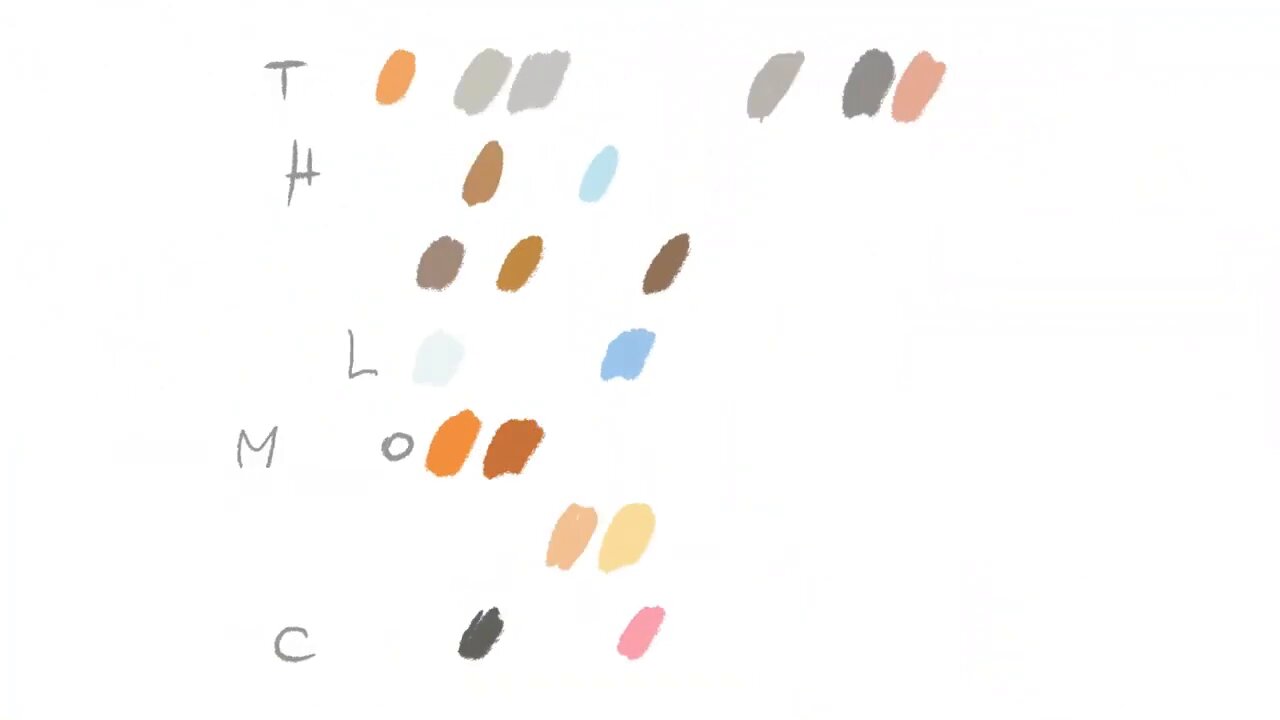 T
H
L
M O
C